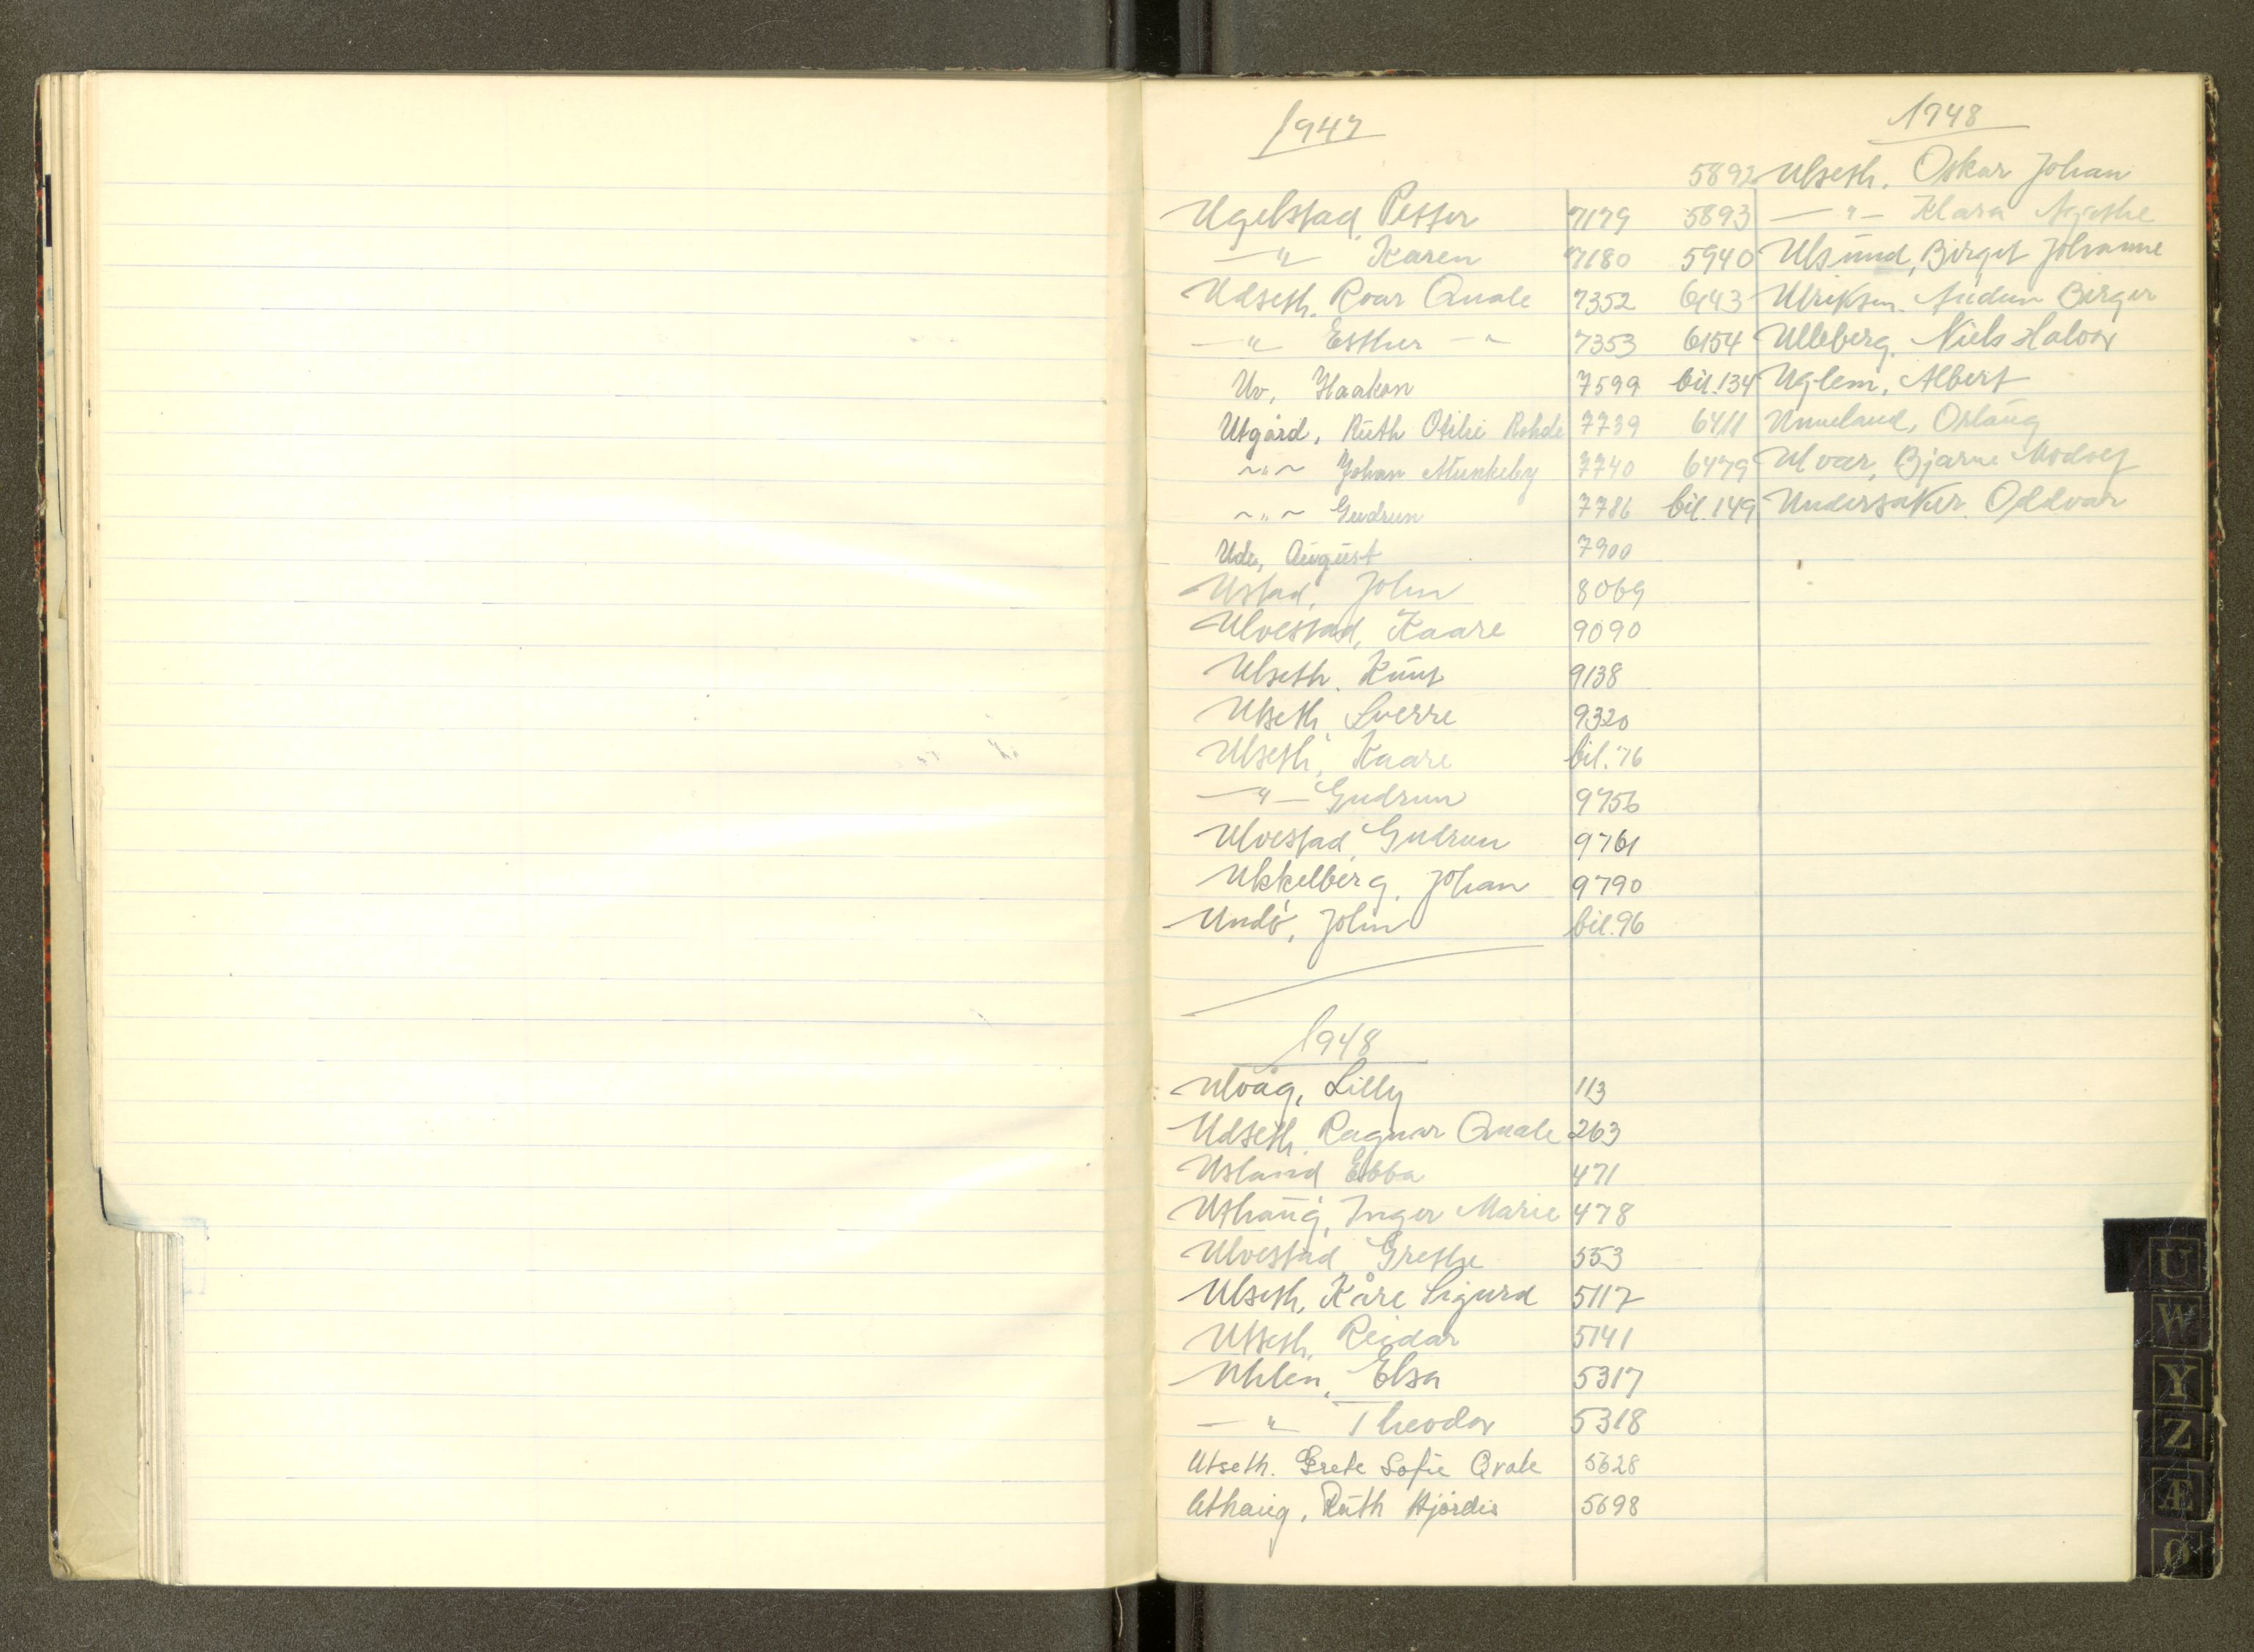 1947
Ugelstad, Petter 7179
—"— Karen 7180
Udseth, Roar Quale 7352
—"— Esther —"— 7353
Uv, Haakon 7599
Utgård, Ruth Otilie Rohde 7739
~"~ Johan Munkeby 7740
~"~ Gudrun 7786
Ude, August 7900
Ustad, John 8069
Ulvestad, Kaare 9090
Ulseth, Knut 9138
Ulseth, Sverre 9320
Ulseth, Kaare bil. 76
—"— Gudrun 9756
Ulvestad, Gudrun 9761
Ukkelberg, Johan 9790
Undø, John bil. 96
1948
Ulvåg, Lilly 113
Udseth, Ragnar Quale 263
Usland Ebba 471
Uthaug, Inger Marie 478
Ulvestad Grethe 553
Ulseth, Kåre Sigurd 5117
Utseth, Reidar 5141
Uhlen, Elsa 5317
—"— Theodor 5318
Utseth. Grete Sofie Qvale 5628
Uthaug, Ruth Hjørdis 5698
1948
5892 Ulseth, Oskar Johan
5893 —"— Klara Agathe
5940 Ulsund, Birgit Johanne
6143 Ulriksen, Audun Birger
6154 Ulleberg, Niels Halvor
bil. 134 Uglem, Albert
6411 Unneland, Oslaug
6479 Ulvar, Bjarne Modolf
bil. 149 Undersaker, Oddvar
U
W
Y
Z
Æ
Ø